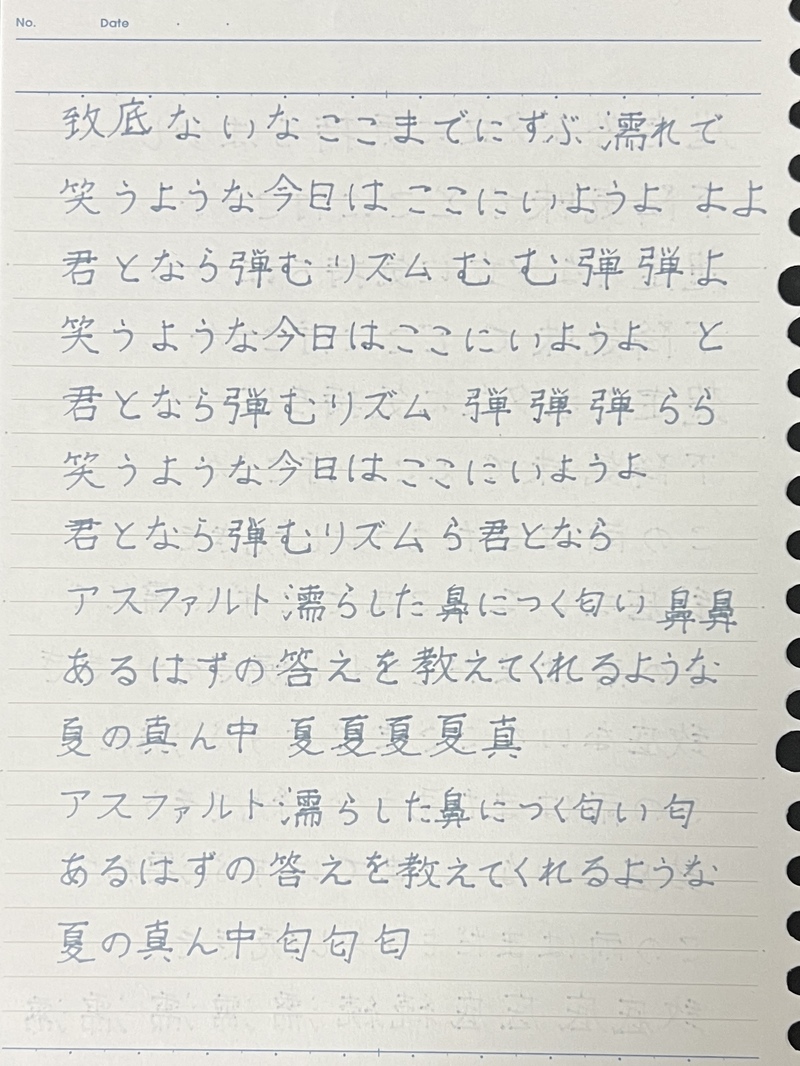 No. Date
致底ないなここまでにずぶ濡れで
笑うような今日はここにいようよ よよ
君となら弾むリズム む む 弾 弾 よ
笑うような今日はここにいようよ と
君となら弾むリズム 弾 弾 弾 らら
笑うような今日はここにいようよ
君となら弾むリズムら君となら
アスファルト濡らした鼻につく匂い鼻鼻
あるはずの答えを教えてくれるような
夏の真ん中 夏夏夏夏真
アスファルト濡らした鼻につく匂い匂
あるはずの答えを教えてくれるような
夏の真ん中匂匂匂